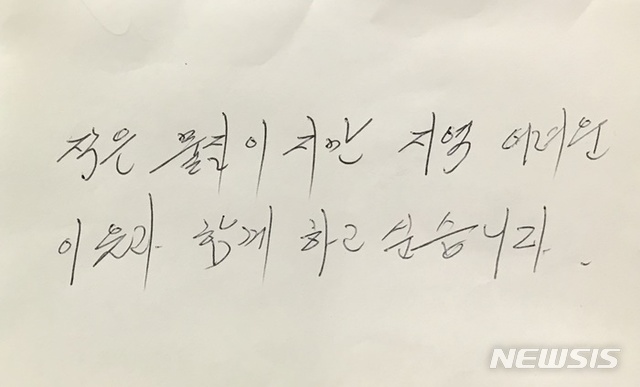 작은 물결이지만 지역 어려운
이웃과 함께 하고 싶습니다.
NEWSIS